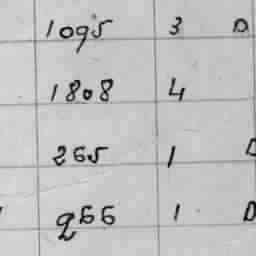 1095 3 D
1808 4
265 1 D
266 1 D